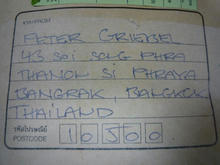 PETER GRIEBEL
43 SOI SONG PHRA
THANON SI PHRAYA
BANGRAK, BANGKOK
THAILAND
รหัสไปรษณีย์
POSTCODE 10500